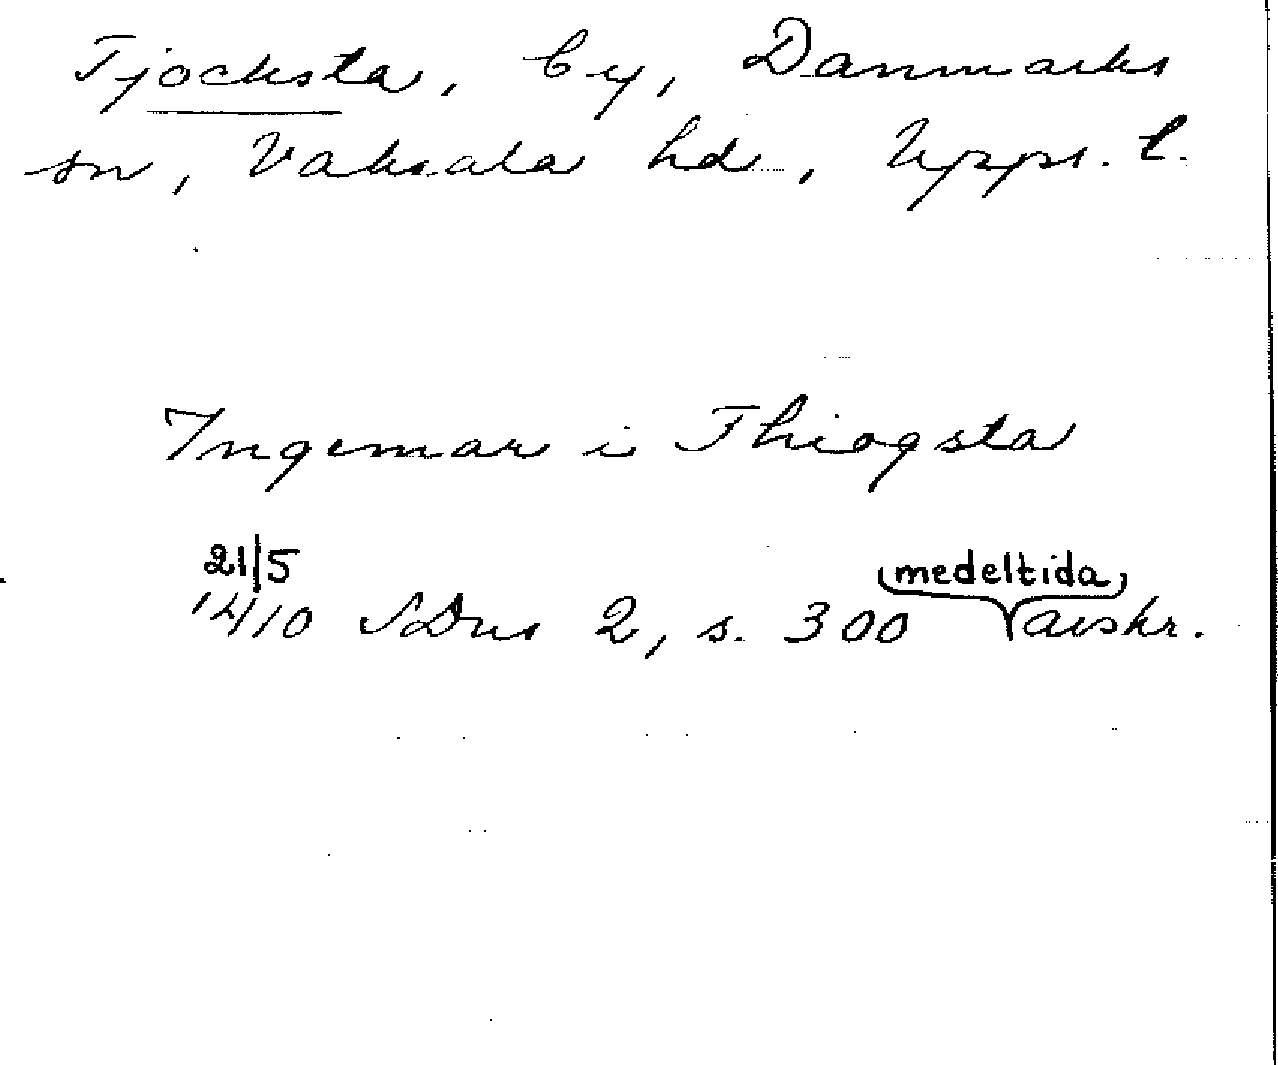 Tjocksta, by, Danmarks
sn, Vaksala hd., Upps. l.
Ingemar i Thiogsta
21/5
1410 SDns 2, s. 300 (medeltida) avskr.